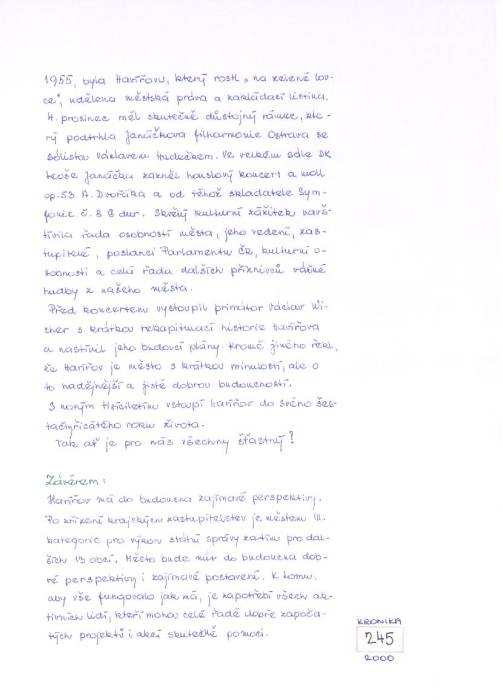 1955, byla Havířovu, který rostl „na zelené lou-
ce“, udělena městská práva a zakládací listina.
4. prosinec měl skutečně důstojný rámec, kte-
rý podtrhla Janáčkova filharmonie Ostrava se
sólistou Václavem Hudečkem. Ve velkém sále DK
Leoše Janáčka zazněl houslový koncert a moll
op. 53 A. Dvořáka a od téhož skladatele Sym-
fonie č. 8 G dur. Skvělý kulturní zážitek navš-
tívila řada osobností města, jeho vedení, zas-
tupitelé, poslanci Parlamentu ČR, kulturní o-
sobnosti a celá řada dalších příznivců vážné
hudby z našeho města.
Před koncertem vystoupil primátor Václav Wi-
cher s krátkou rekapitulací historie Havířova
a nastínil jeho budoucí plány. Kromě jiného řekl,
že Havířov je město s krátkou minulostí, ale o
to nadějnější a jistě dobrou budoucností.
S novým tisíciletím vstoupí Havířov do svého šes-
tačtyřicátého roku života.
Tak ať je pro nás všechny šťastný!
Závěrem:
Havířov má do budoucna zajímavé perspektivy.
Po zřízení krajských zastupitelstev je městem III.
kategorie pro výkon státní správy zatím pro dal-
ších 13 obcí. Město bude mít do budoucna dob-
ré perspektivy i zajímavé postavení. K tomu,
aby vše fungovalo jak má, je zapotřebí všech ak-
tivních lidí, kteří mohou celé řadě dobře započa-
tých projektů i akcí skutečně pomoci.
KRONIKA
245
2000